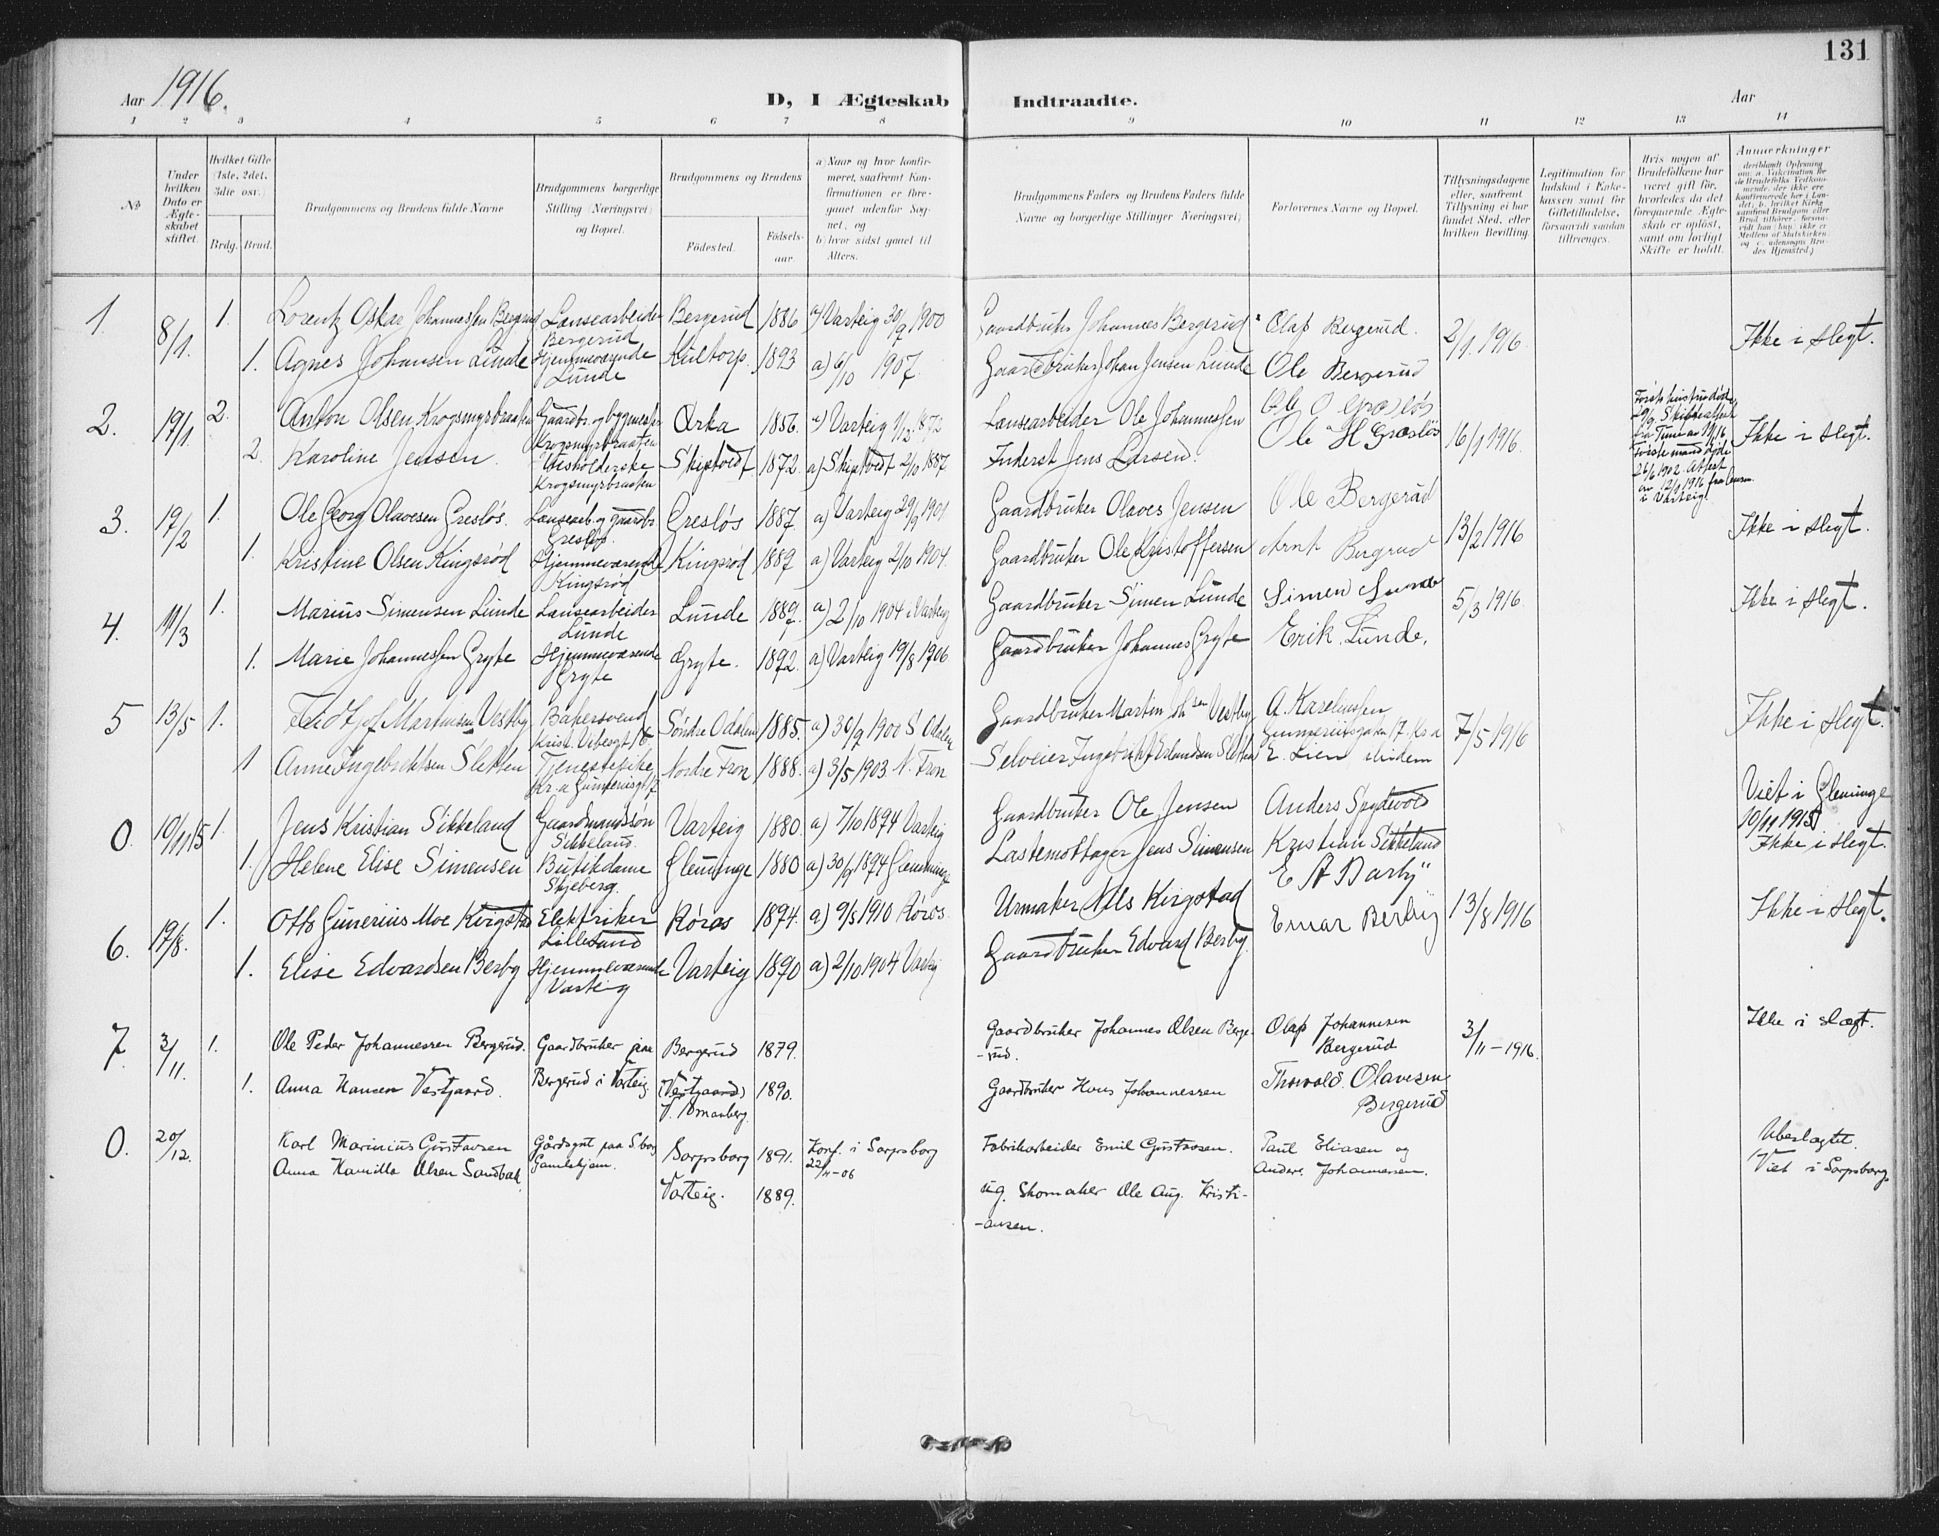 131
Aar 1916.
D, I Ægteskab Indtraadte.
Aar
1 2 3 4 5 6 7 8 9 10 11 12 13 14
No
Under hvilken Dato er Ægteskabet stiftet.
Hvilket Gifte (1ste, 2det, 3die osv.)
Brdg. Brud.
Brudgommens og Brudens fulde Navne
Brudgommens borgerlige Stilling (Næringsvei) og Bopæl.
Brudgommens og Brudens
Fødested.
Fødselsaar.
a) Naar og hvor konfirmeret, saafremt Konfirmationen er foregaaet udenfor Sognet, og
b) hvor sidst gaaet til Alters.
Brudgommens Faders og Brudens Faders fulde Navne og borgerlige Stillinger Næringsvei)
Forlovernes Navne og Bopæl.
Tillysningsdagene eller, saafremt Tillysning ei har fundet Sted, efter hvilken Bevilling.
Legitimation for Indskud i Enkekassen samt for Giftetilladelse, forsaavidt saadan tiltrænges.
Hvis nogen af Brudefolkene har været gift før, hvorledes da det foregaaende Ægteskab er opløst, samt om lovligt Skifte er holdt.
Anmærkninger
1. 8/1. 1. Lorentz Oskar Johannessen Bergerud Lænsearbeider Bergerud Bergerud 1886 a) Varteig 30/9 1900 Gaardbruker Johannes Bergerud Olaf Bergerud. 2/1 1916 Ikke i slegt.
1. Agnes Johansen Lunde Hjemmeværende Lunde Kultorp. 1893 a) 6/10 1907. Gaardbruker Johan Jensen Lunde Ole Bergerud
2. 19/1 2. Anton Olsen Krogsmyrbraaten Gaardbr. og bygmester Krogsmyrbraaten Ørka 1856. a) Varteig 1872 Lænsearbeider Ole Johannessen Ole O Græsløs 16/1 1916. Ikke i slegt.
2. Karoline Jensen. Husholderske Krogsmyrbraaten Skiptvedt 1872. a) Skiptvedt 2/10 1887 Inderst Jens Larsen. Ole H Græsløs
3. 19/2 1. Ole Georg Olavesen Gresløs. Lænsearb. og gaardbr. Gresløs Gresløs 1887. a) Varteig 29/9 1901 Gaardbruker Olaves Jensen Ole Bergerud 13/2 1916 Ikke i slegt.
1. Kristine Olsen Kingsrød Hjemmeværende Kingsrød Kingsrød 1889 a) Varteig 2/10 1904. Gaardbruker Ole Kristoffersen Arnt Bergerud
4. 11/3 1. Marius Simensen Lunde Lænsearbeider Lunde Lunde 1889. a) 2/10 1904 i Varteig Gaardbruker Simen Lunde Simen Lunde 5/3 1916 Ikke i slegt.
1. Marie Johannessen Gryte Hjemmeværende Gryte Gryte. 1892. a) Varteig 19/8 1906 Gaardbruker Johannes Gryte Erik Lunde.
5 13/5 1. Fridtjof Martinsen Vestby Bakersvend Søndre Odalen 1885. a) 30/9 1900 S Odalen Gaardbruker Martin Johsen Vestby A. Kareliussen 7/5 1916 Ikke i slegt.
1 Anne Ingebriktsen Sletten Tjenestepike Nordre Fron 1888. a) 3/5 1903 N. Fron Selveier Ingebrikt Erlandsen Sletten E. Lien
0. 10/11 15 1. Jens Kristian Sikkeland Gaardmandssøn Sikkeland. Varteig 1880. a) 7/10 1894 Varteig Gaardbruker Ole Jensen Anders Spydevold Viet i Glemminge 10/11 1915 Ikke i slegt.
1. Helene Elise Simensen Butikdame Skjeberg. Glemminge 1880 a) 30/9 1894 Glemminge Lastemottager Jens Simensen Kristian Sikkeland
6. 19/8. 1. Otto Gunerius Moe Kirgstad Elektriker Lillesand Røros 1894. a) 9/5 1910 Røros. Urmaker Nils Kirgstad E A Barby 13/8 1916 Ikke i slegt.
1. Elise Edvardsen Berby Hjemmeværende Varteig Varteig 1890 a) 2/10 1904 Varteig Gaardbruker Edvard Berby. Einar Berby
7. 3/11. 1. Ole Peder Johannessen Bergerud. Gaardbruker paa Bergerud i Varteig Bergerud 1879. Gaardbruker Johannes Olsen Bergerud. Olaf Johannesen Bergerud 3/11 - 1916. Ikke i slægt.
1. Anna Hansen Vestgaard. (Vestgaard) 1890. Gaardbruker Hans Johannessen Thorvald Olavesen Bergerud
0. 20/12. Karl Marinius Gustavsen Gårdsgut paa Sborg Gamlehjem. Sarpsborg 1891. Konf. i Sarpsborg 22/4-06 Fabrikarbeider Emil Gustavsen. Paul Eliasen og Ubeslægtet. Viet i Sarpsborg.
Anna Kamilla Olsen Sandbak Varteig. 1889. ug. Skomaker Ole Aug. Kristiansen. Anders Johannessen.